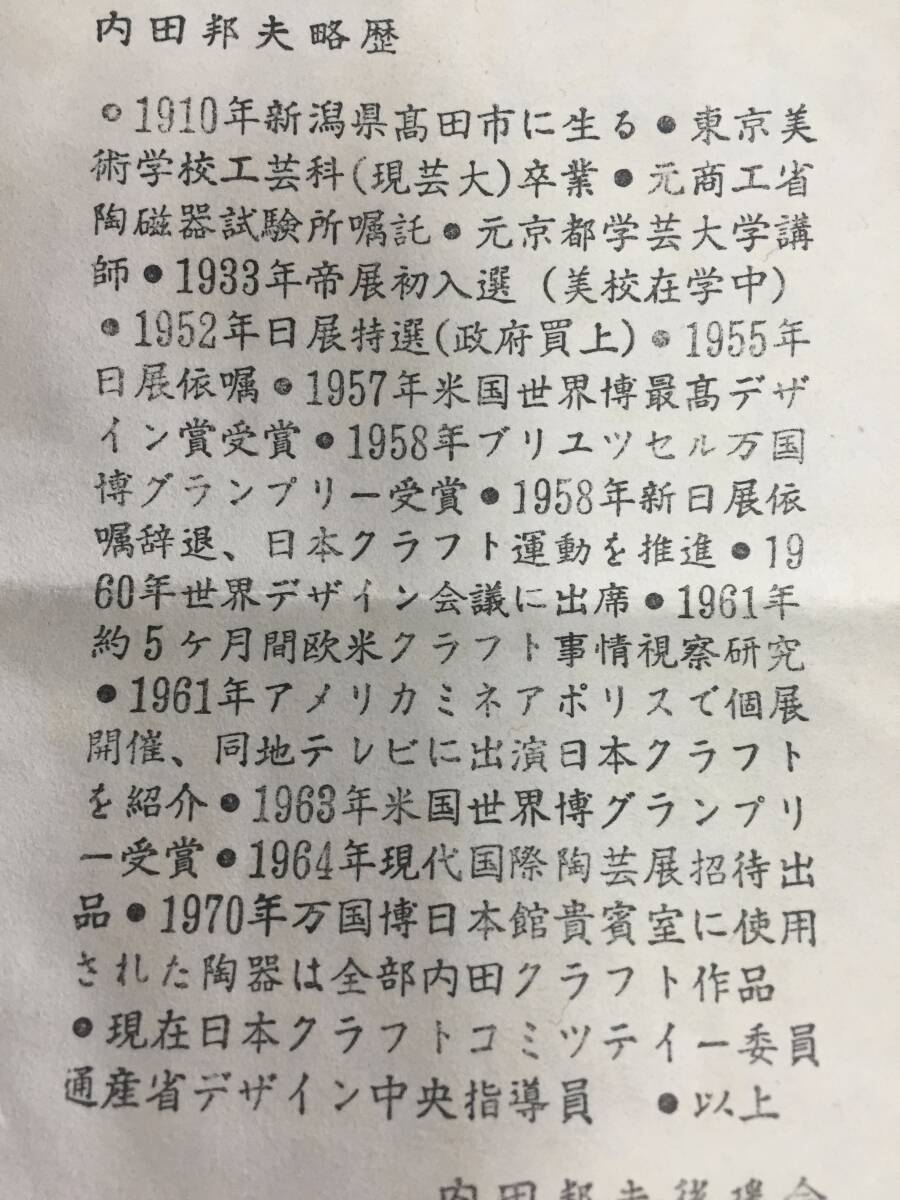 内田邦夫略歴
●1910年新潟県髙田市に生る●東京美
術学校工芸科(現芸大)卒業●元商工省
陶磁器試験所嘱託●元京都学芸大学講
師●1933年帝展初入選(美校在学中)
●1952年日展特選(政府買上)●1955年
日展依嘱●1957年米国世界博最高デザ
イン賞受賞●1958年ブリユツセル万国
博グランプリー受賞●1958年新日展依
嘱辞退、日本クラフト運動を推進●19
60年世界デザイン会議に出席●1961年
約5ケ月間欧米クラフト事情視察研究
●1961年アメリカミネアポリスで個展
開催、同地テレビに出演日本クラフト
を紹介●1963年米国世界博グランプリ
ー受賞●1964年現代国際陶芸展招待出
品●1970年万国博日本館貴賓室に使用
された陶器は全部内田クラフト作品
●現在日本クラフトコミツテイー委員
通産省デザイン中央指導員　●以上
内田邦夫後援会